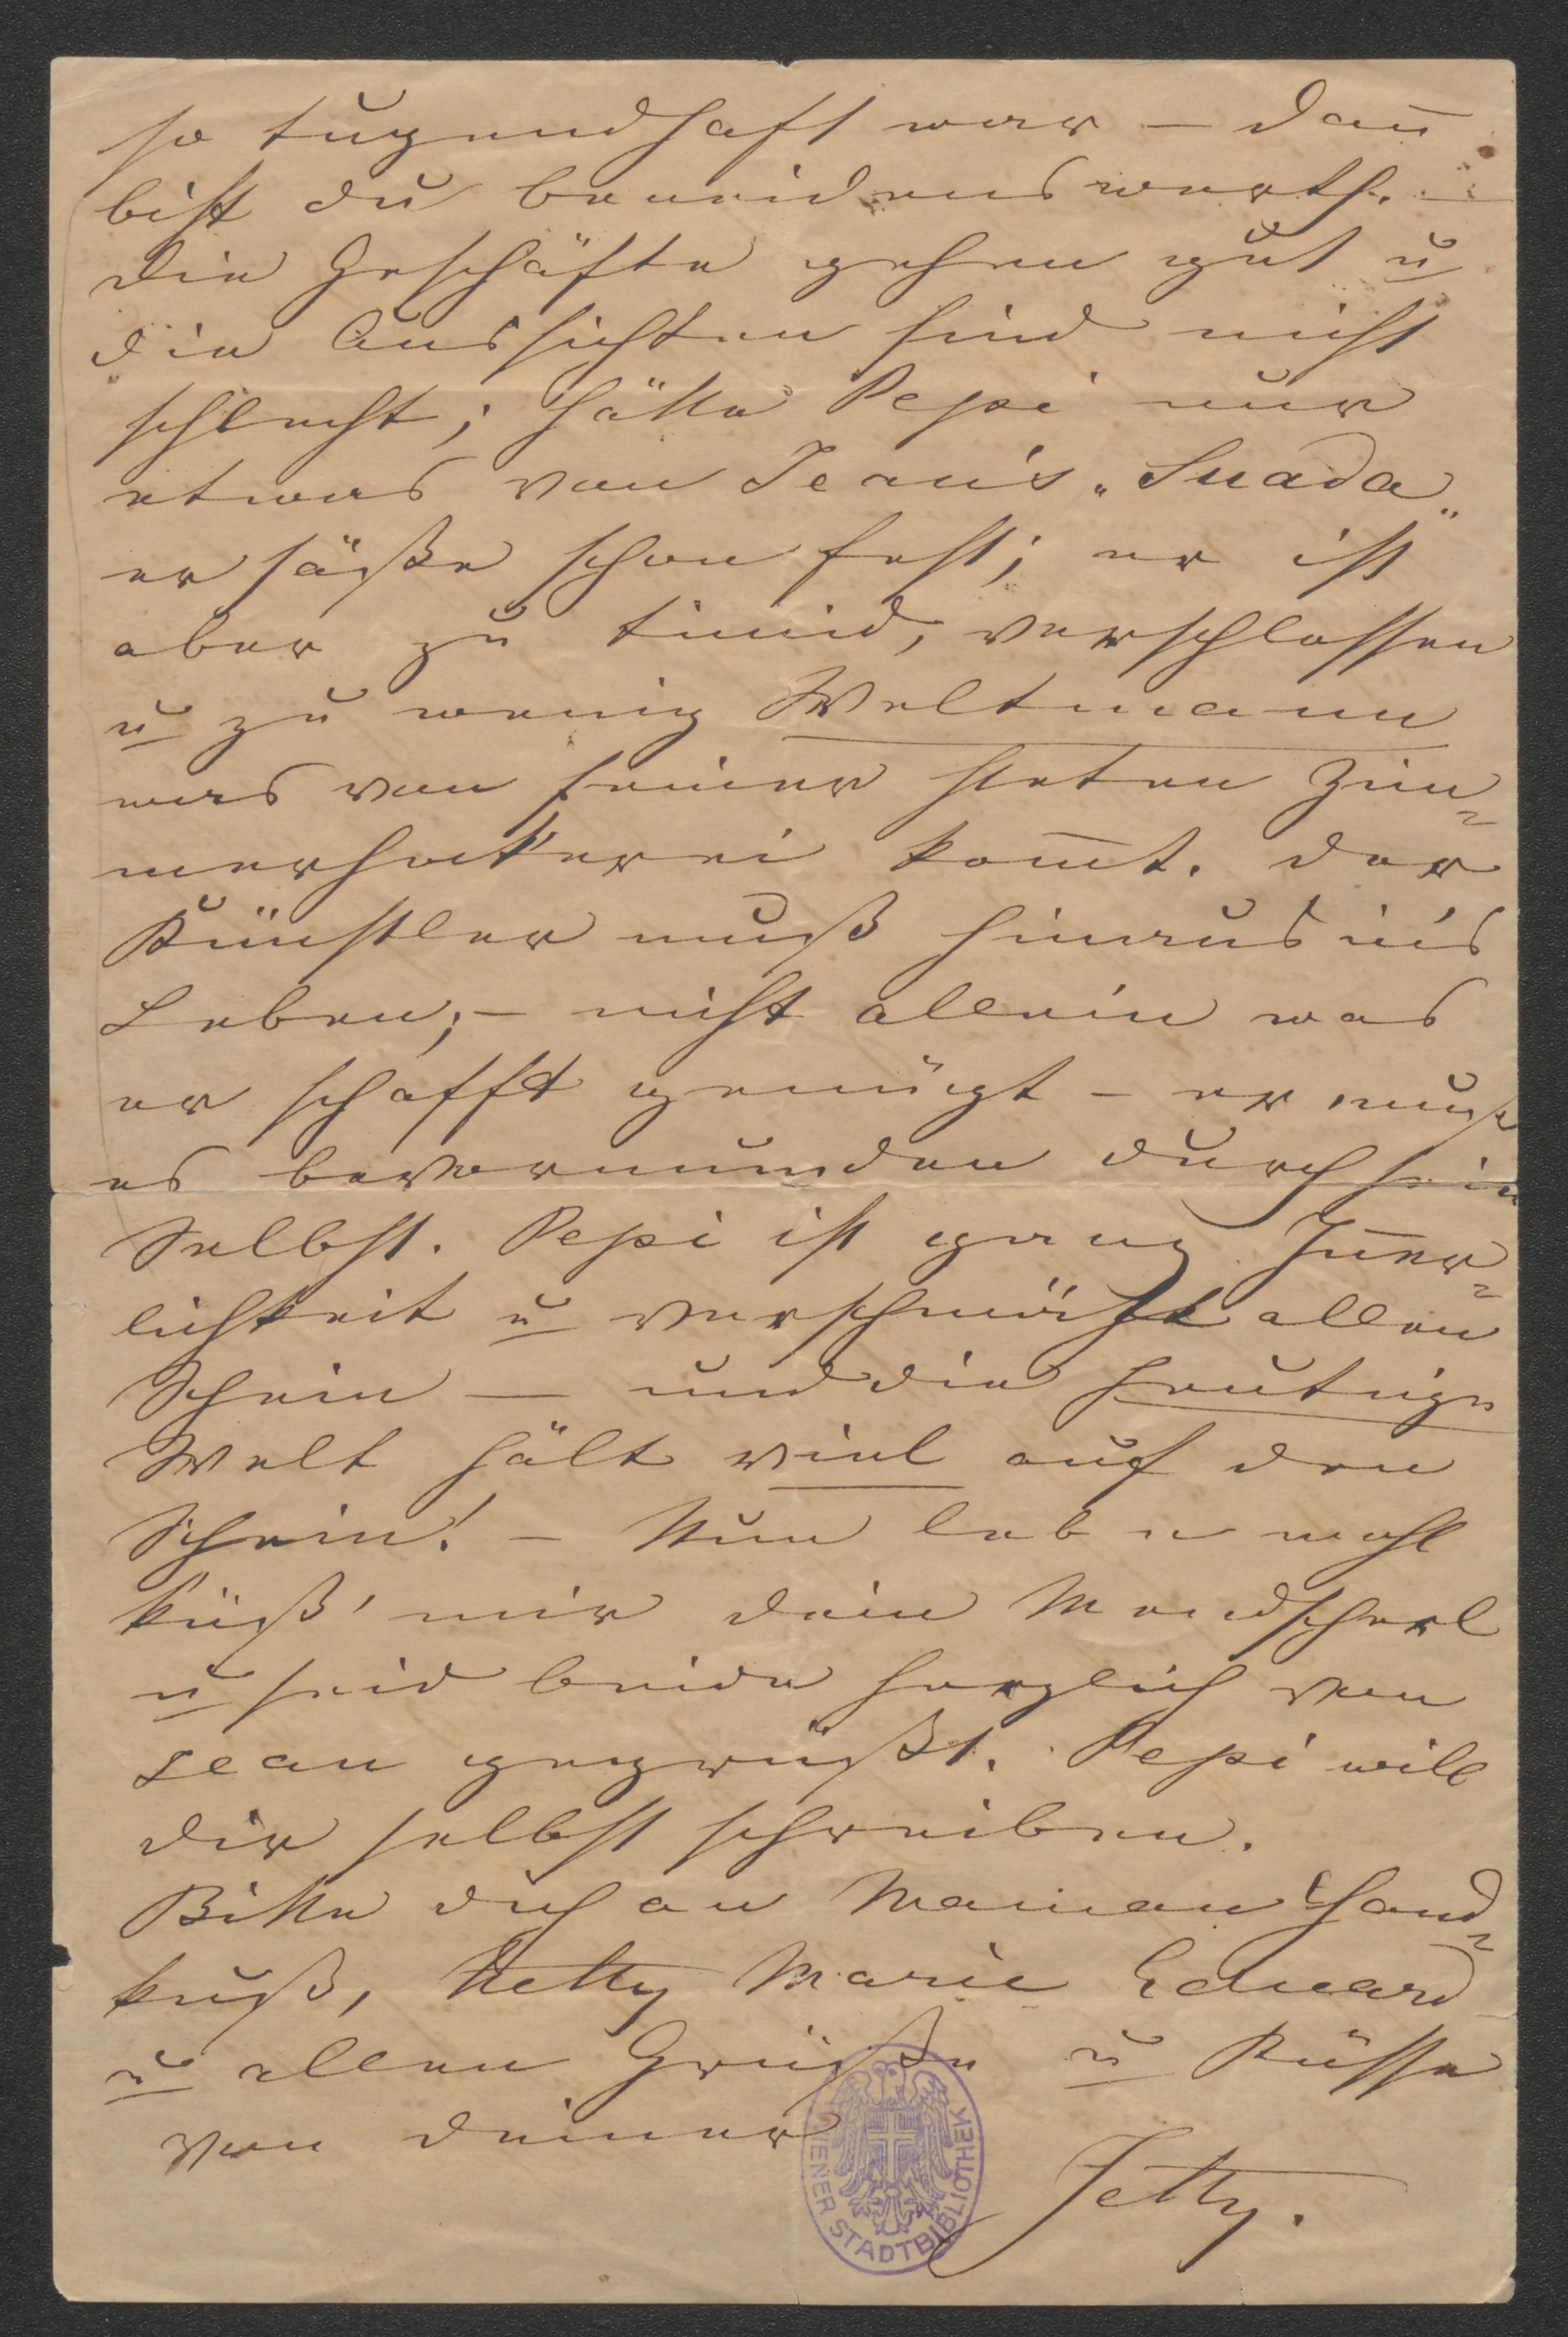 so tugendhaft war – dan̅
bist du beneidenswerth. –
Die Geschäfte gehen gut u
die Aussichten sind nicht
schlecht; hätte Pepi nur
etwas von Jean's „Suada„
er säße schon fest; er ist
aber zu timid, verschlossen
u zu wenig Weltmann
was von seiner steten Zim=
merhockerei kom̅t. Der
Künstler muß hinaus in's
Leben; – nicht allein was
er schafft genügt – er muß
es bevormunden durch sein
Selbst. Pepi ist ganz In̅er=
lichkeit u verschmäht allen
Schein – und die heutige
Welt hält viel auf den
Schein! – Nun lebe wohl
küß' mir dein Mendscherl
u seid beide herzlich von
Jean gegrüßt. Pepi will
dir selbst schreiben.
Bitte dich an Maman Hand=
kuß, Netty Marie Eduard
u allen Grüße u Küsse
von deiner
Jetty.
WIENER STADTBIBLIOTHEK